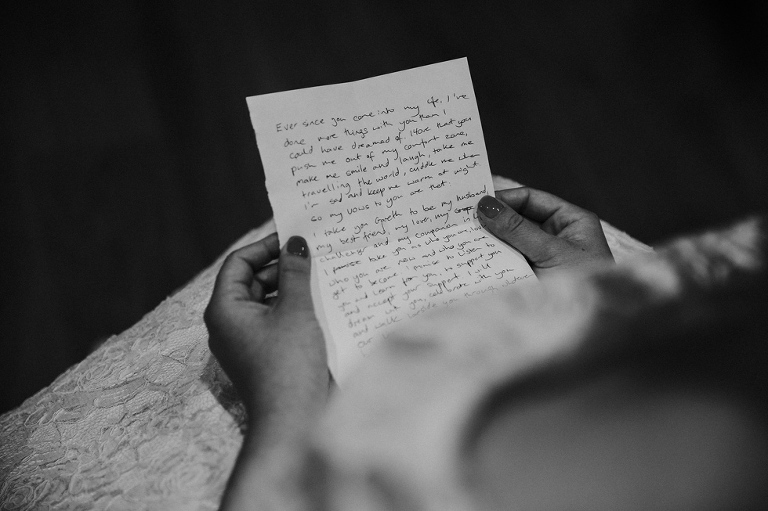 Ever since you come into my life, I've
done more things with you than I
could have dreamed of. I love that you
push me out of my comfort zone,
make me smile and laugh, take me
travelling the world, cuddle me when
I'm sad and keep me warm at night.
so my vows to you are that.
I take you Gareth to be my husband,
my best friend, my lover, my
and my companion in
I promise take you as who you are,
who you are now and who you are
yet to become. I promise to listen to
you and learn from you, to support you
and accept your support. I will
dream with you, celebrate with you
and walk beside you through whatever
our